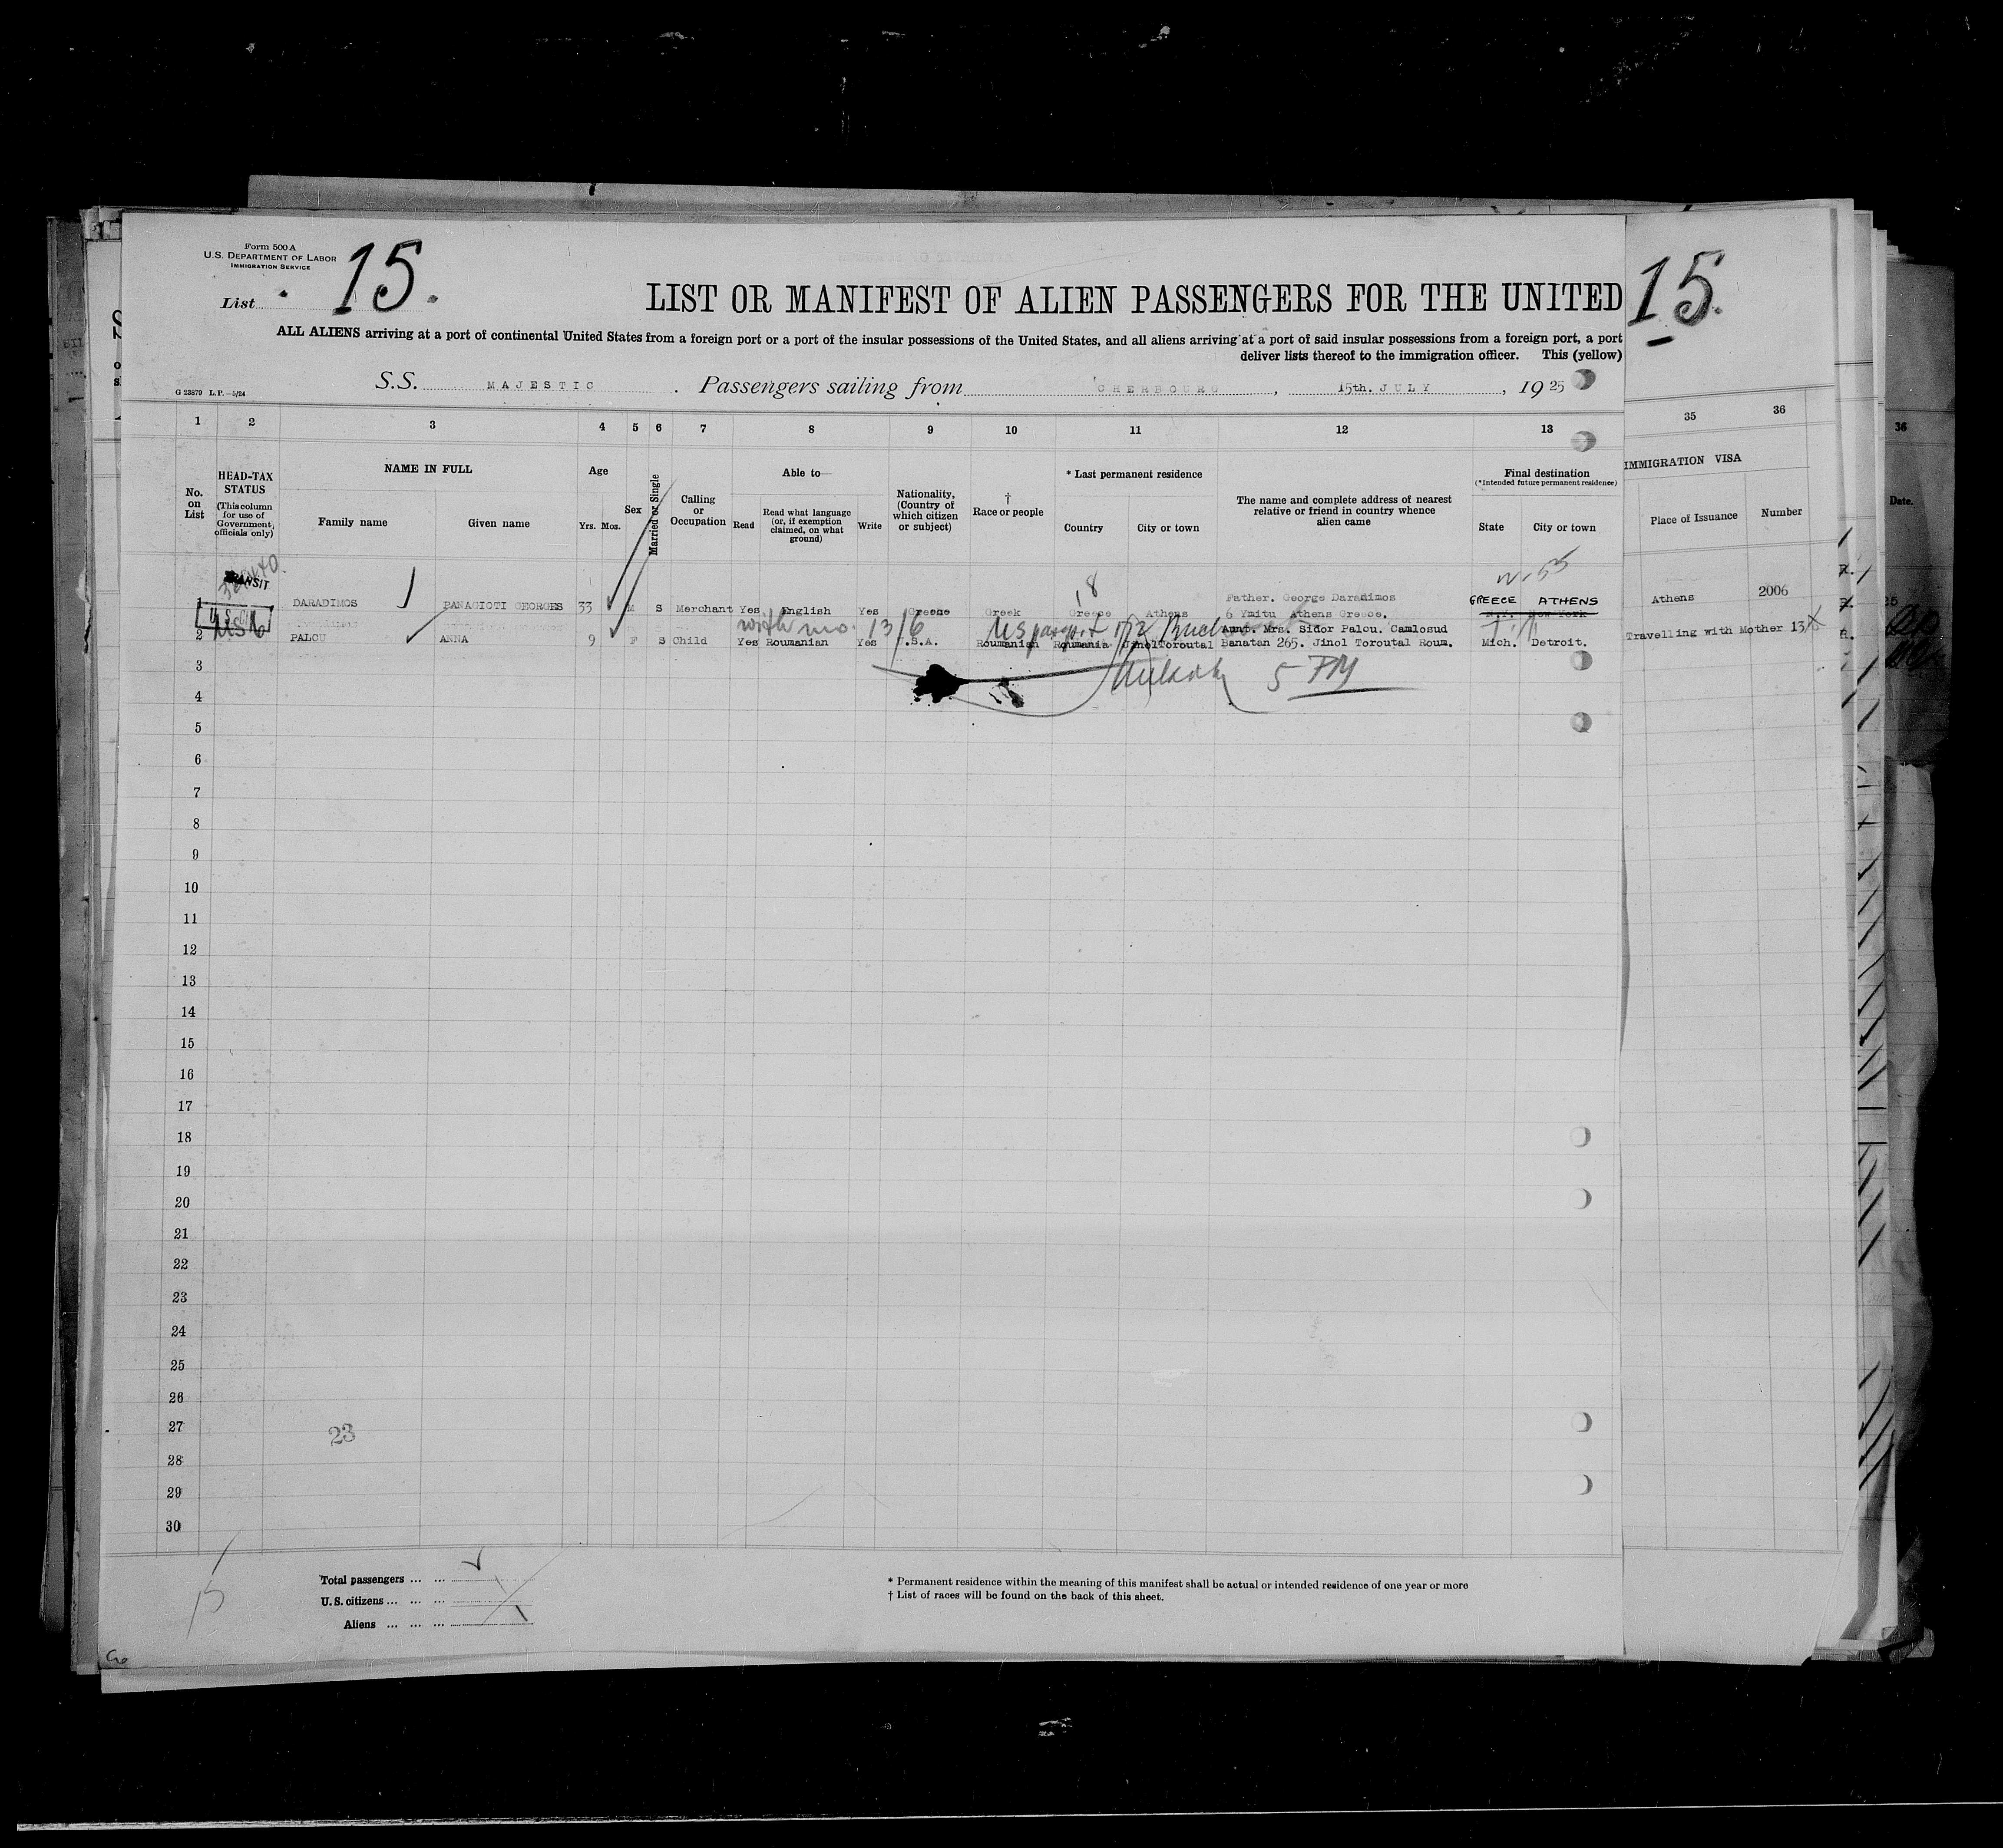 Form 500 A
U.S. DEPARTMENT OF LABOR
IMMIGRATION SERVICE
List 15.
15.
LIST OR MANIFEST OF ALIEN PASSENGERS FOR THE UNITED
ALL ALIENS arriving at a port of continental United States from a foreign port or a port of the insular possessions of the United States, and all aliens arriving at a port of said insular possessions from a foreign port, a port
deliver lists thereof to the immigration officer. This (yellow)
S.S. MAJESTIC. Passengers sailing from CHERBOURG, 15th. JULY, 1925
G 23879 L.P.—5/24
1 2 3 4 5 6 7 8 9 10 11 12 13 35 36
36
No. on List
HEAD-TAX STATUS
(This column for use of Government officials only)
NAME IN FULL
Family name Given name
Age
Yrs. Mos.
Sex
Married or Single
Calling or Occupation
Able to—
Read
Read what language (or, if exemption claimed, on what ground)
Write
Nationality, (Country of which citizen or subject)
† Race or people
* Last permanent residence
Country City or town
The name and complete address of nearest relative or friend in country whence alien came
Final destination
(*Intended future permanent residence)
State City or town
IMMIGRATION VISA
Place of Issuance Number
Date.
TRANSIT
18
1 DARADIMOS PANAGIOTI GEORGES 33 M S Merchant Yes English Yes Greece Greek Greece Athens Father. George Daradimos
6 Ymitu Athens Greece. GREECE ATHENS
N.Y. New York
Athens 2006
US passport
2 PALOU ANNA 9 F S Child Yes Roumanian Yes U.S.A. Roumanian Roumania Toroutal Aunt. Mrs. Sidor Palou. Camlosud
Banatan 265. Jinol Toroutal Roum. Mich. Detroit.
Travelling with Mother 13/
3
4
5
6
7
8
9
10
11
12
13
14
15
16
17
18
19
20
21
22
23
24
25
26
27
23
28
29
30
Total passengers ... ...
U.S. citizens ... ... ...
Aliens ... ... ...
* Permanent residence within the meaning of this manifest shall be actual or intended residence of one year or more
† List of races will be found on the back of this sheet.